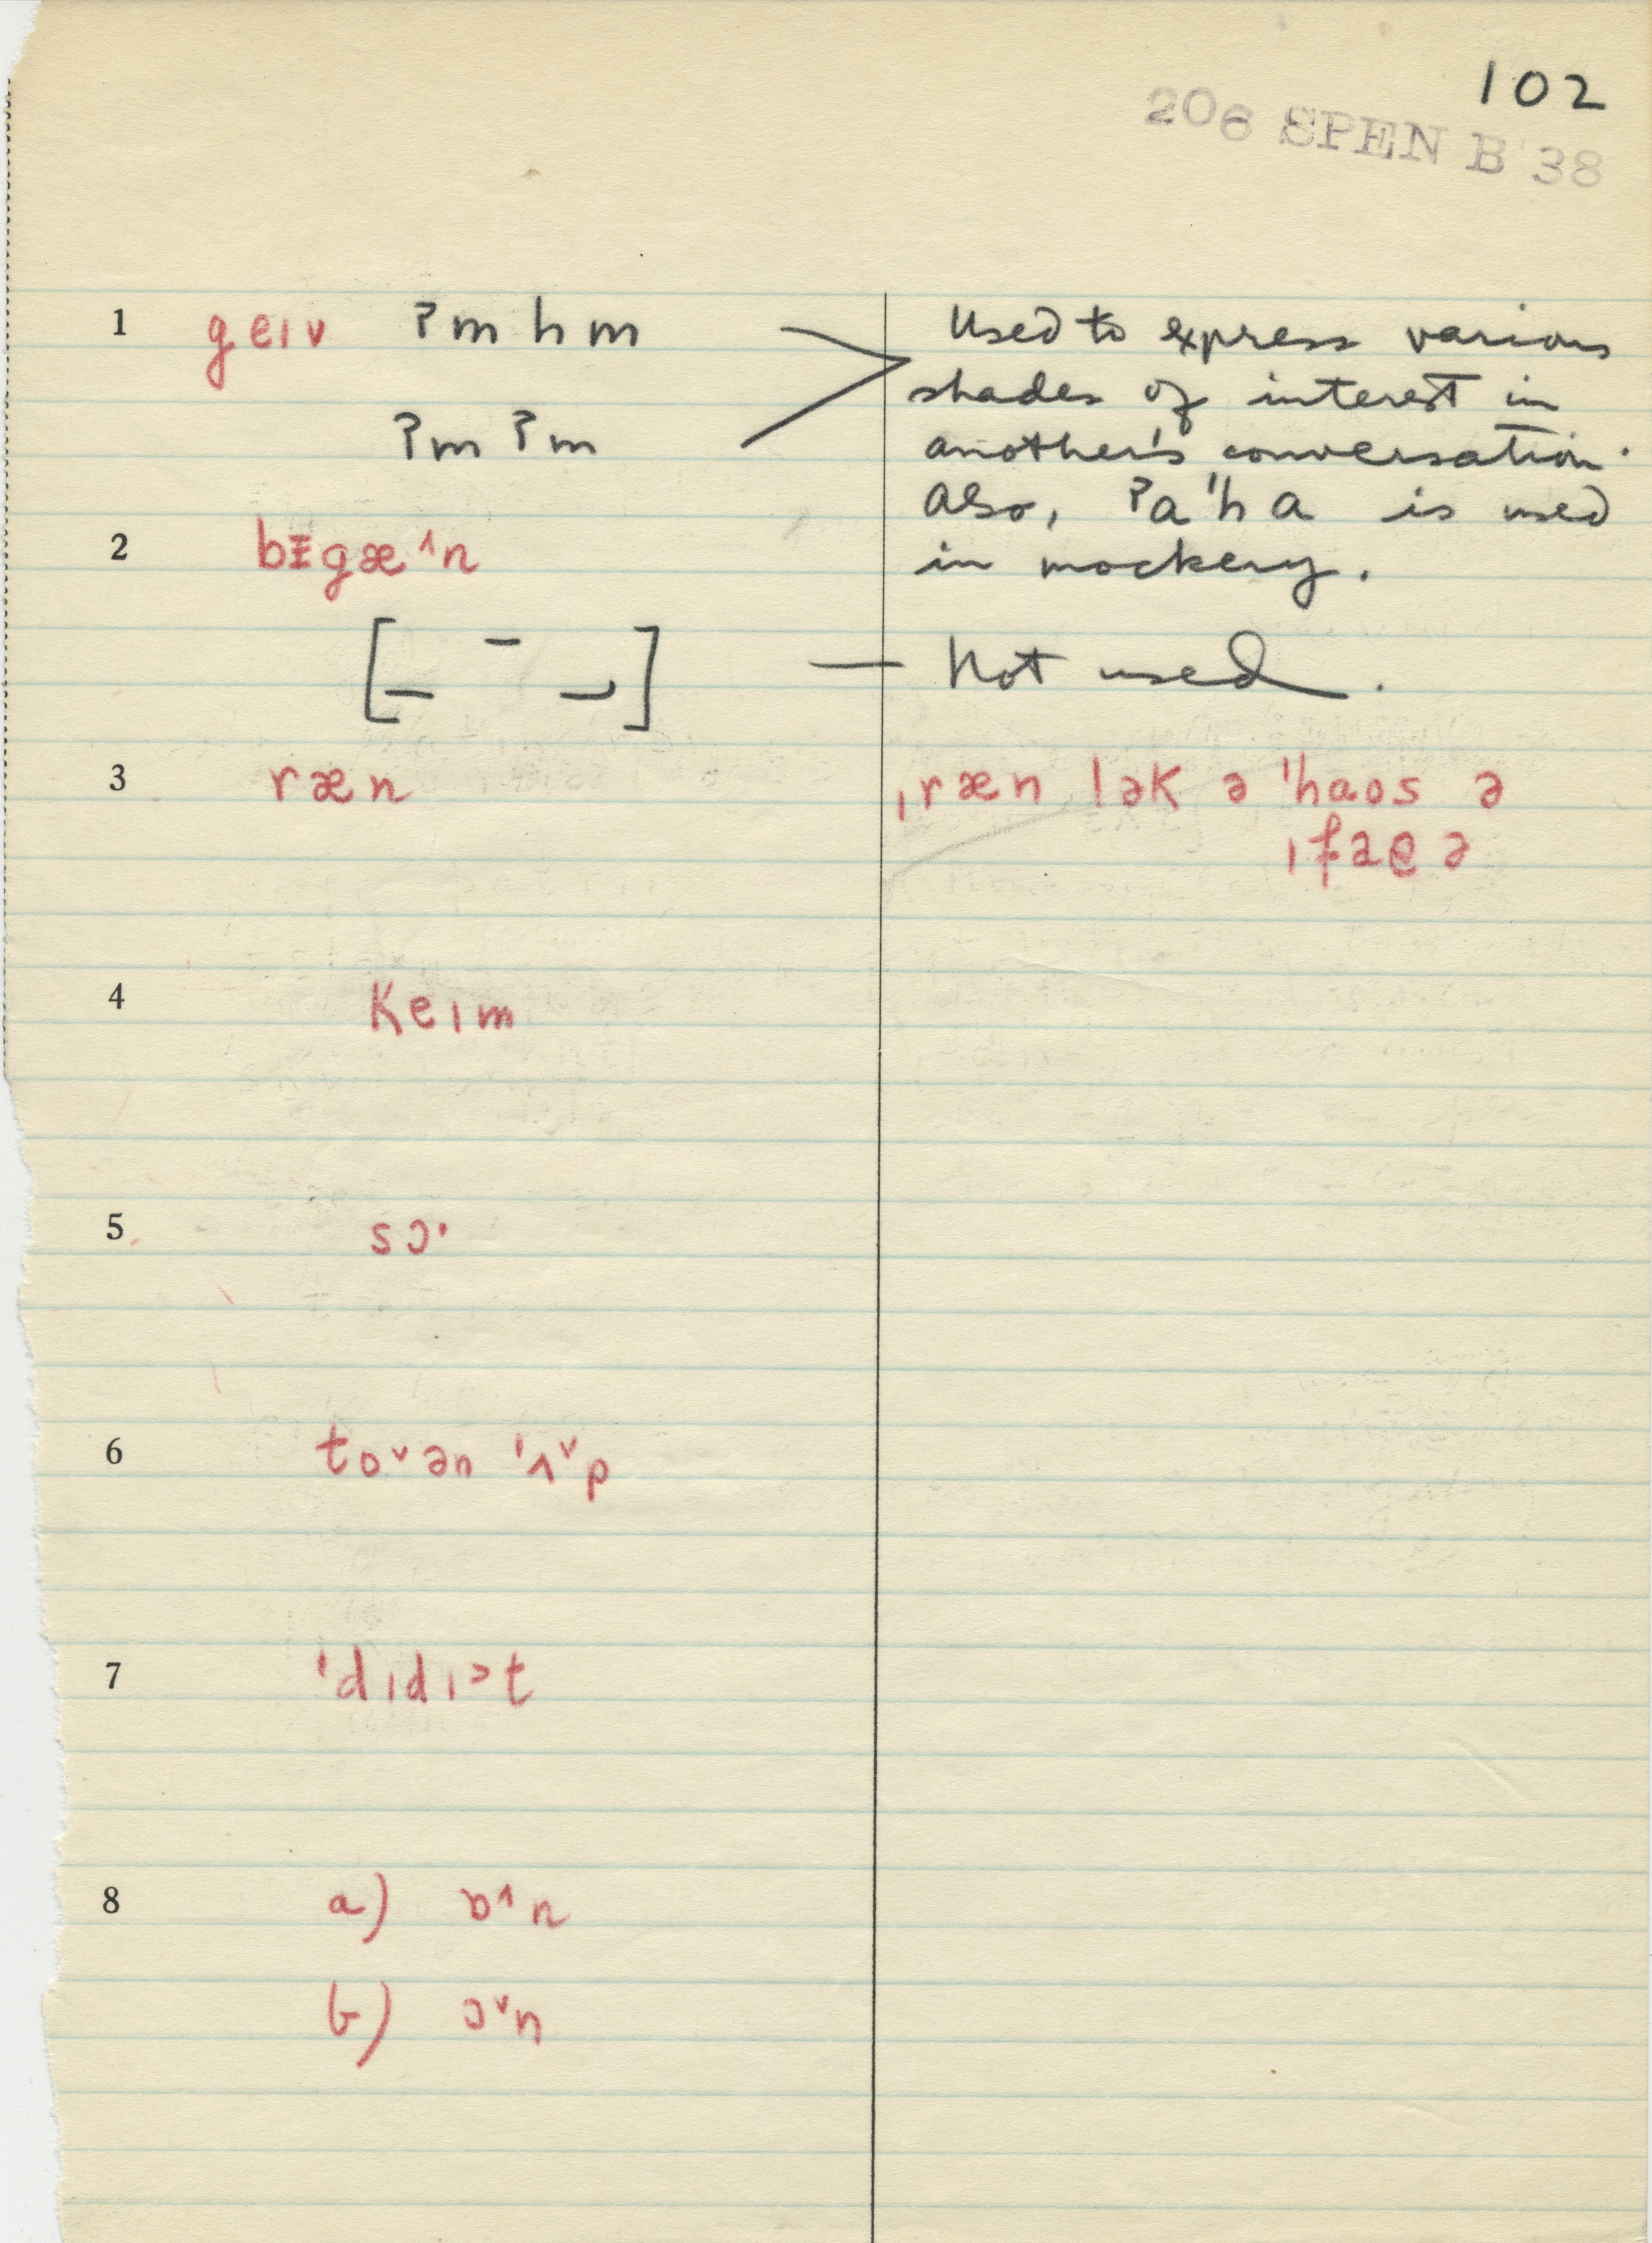 102
206 SPEN B 38
1 geɪv ʔmhm Used to express various
shades of interest in
ʔmʔm another's conversation.
Also, ʔa'ha is used
2 bɪgæ^n in mockery.
[_ ¯ _] — Not used.
3 ræn ˌræn lək ə 'haos ə
ˌfaeə
4 keɪm
5 sɔ·
6 toˇən 'ʌˇp
7 'dɪdɪ>t
8 a) ɒ^n
b) ɔˇn